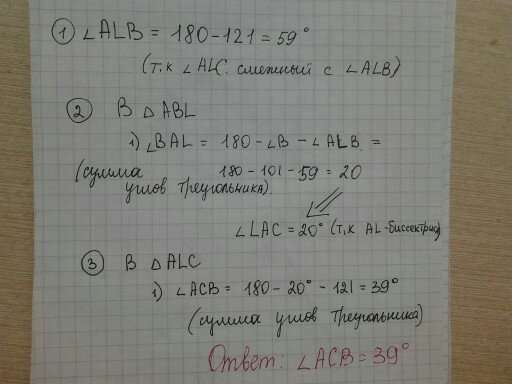 ① ∠ALB = 180-121 = 59°
(т.к ∠ALC смежный с ∠ALB)
② В △ABL
1) ∠BAL = 180 - ∠B - ∠ALB =
(сумма 180 - 101 - 59 = 20
углов треугольника).
∠LAC = 20° (т,к AL-биссектриса)
③ В △ALC
1) ∠ACB = 180 - 20° - 121 = 39°
(сумма углов треугольника)
Ответ: ∠ACB = 39°